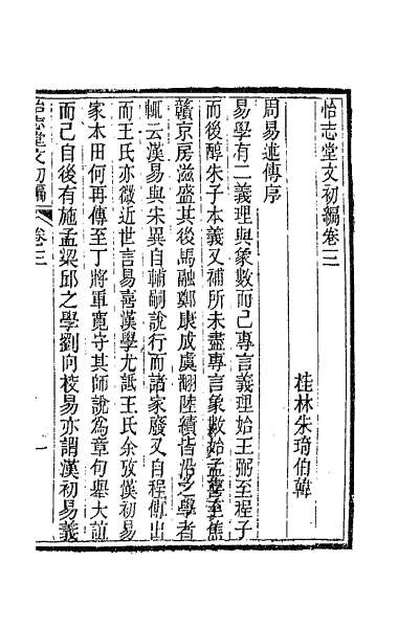 怡志堂文初編卷三
桂林朱琦伯韓
周易述傳序
易學有二義理與象數而已專言義理始王弼至程子
而後醇朱子本義又補所未盡專言象數始孟喜至焦
贛京房滋盛其後馬融鄭康成虞翻陸績皆沿之學者
輒云漢易與宋異自輔嗣說行而諸家廢又自程傳出
而王氏亦微近世言易喜漢學尤詆王氏余攷漢初易
家本田何再傳至丁將軍寬守其師說為章句舉大誼
而已自後有施孟梁邱之學劉向校易亦謂漢初易義
怡志堂文初編
卷三
一